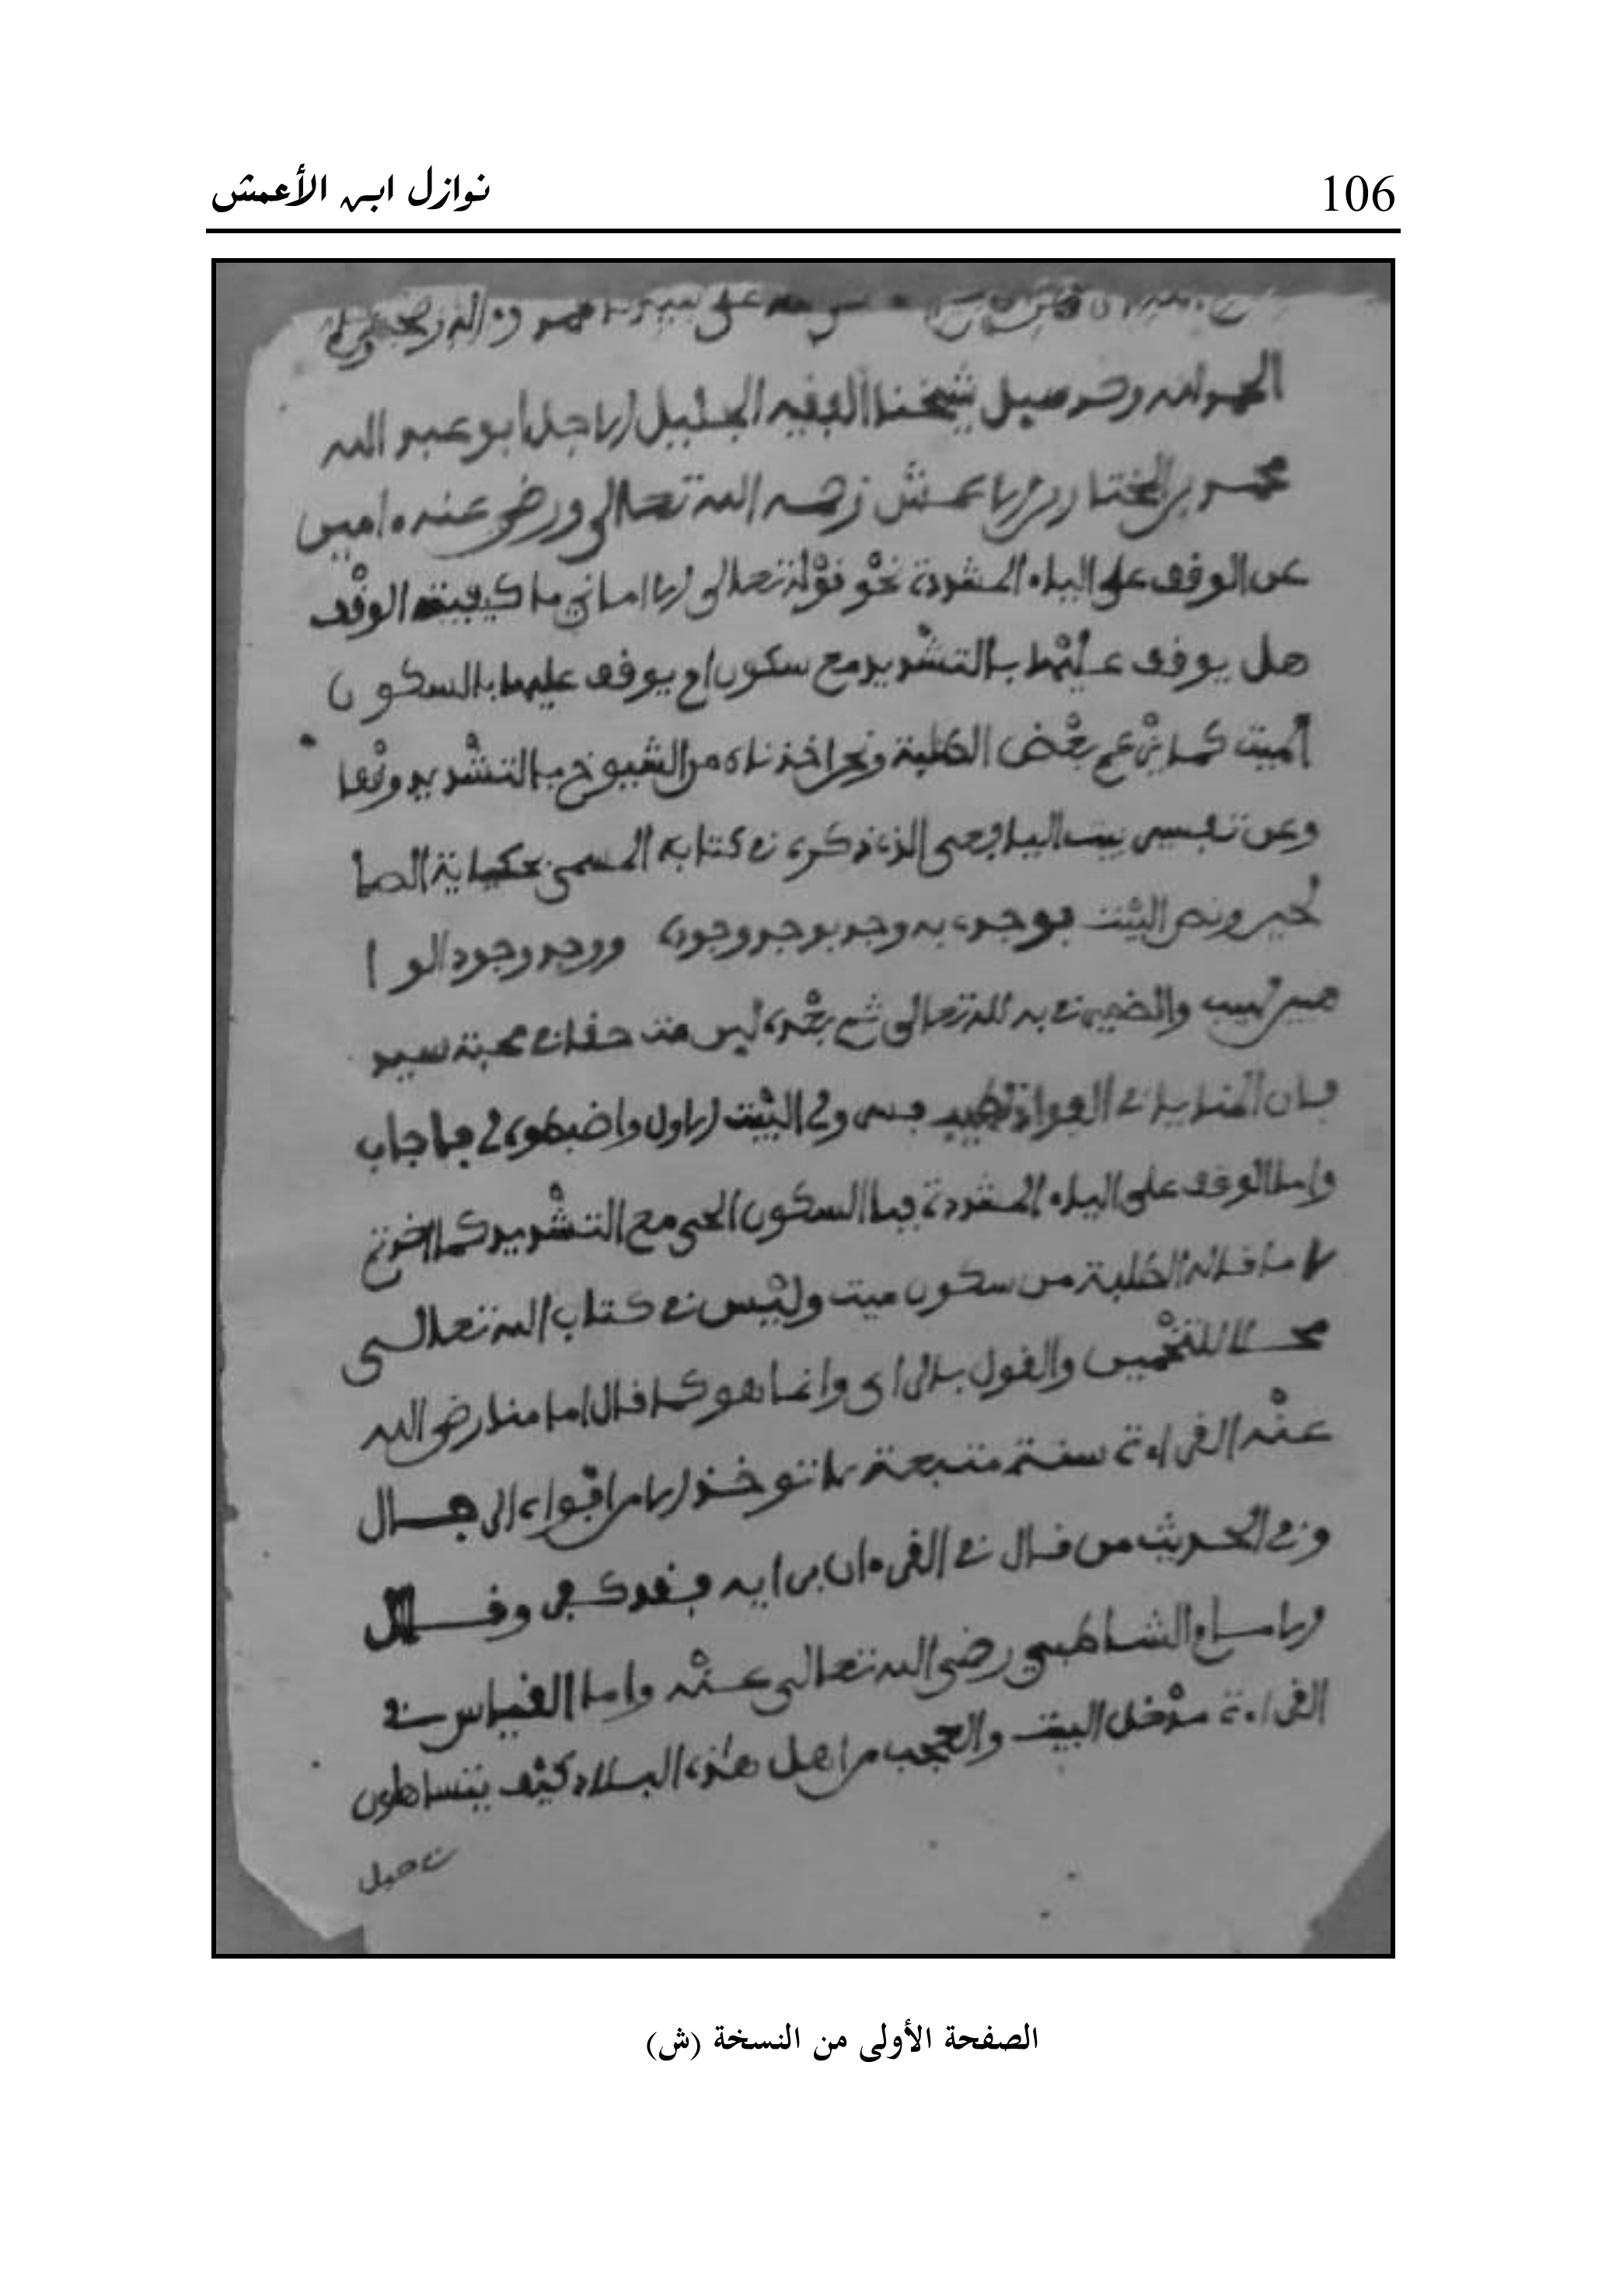 106
نوازل ابن الأعمش
على سيدنا محمد وءاله وصحبه
الحمد لله وقد سيل شيخنا الفقيه الجليل الاجل ابو عبد الله
محمد بن المختار بن الاعمش رحمه الله تعالى ورضي عنه ءامين
عن الوقف على الياء المشددة نحو قوله تعالى الا اماني ما كيفية الوقف
هل يوقف عليها بالتشديد مع سكون ام يوقف عليها بالسكون
الميت كما زعم بعض الطلبة ونحن اخذناه من الشيوخ بالتشديد وقفا
وعن تفسير بيت اليافعي الذي ذكره في كتابه المسمى بحكاية الصا
لحين ونص البيت فوجدي به وجد بوجد وجوده ووجد وجود الوا
جدين لهيب والضمير في به لله تعالى ثم بعده ليس من حقا في محبة سيد
فان المنايا في الفؤاد تطيب فسر لي البيت الاول واضبطه لي فاجاب
واما الوقف على الياء المشددة فبالسكون الحي مع التشديد كما اخذتم
لا ما قاله الطلبة من سكون ميت وليس في كتاب الله تعالى
محلا للتخمين والقول بالراي وانما هو كما قال امامنا رضي الله
عنه القراءة سنة متبعة لا توخذ الا من افواه الرجال
وفي الحديث من قال في القرءان برايه فقد كفر وقال
الامام الشاطبي رضي الله تعالى عنه واما القياس في
القراءة مدخل البيت والعجب من اهل هذه البلاد كيف يتساهلون
في
الصفحة الأولى من النسخة (ش)